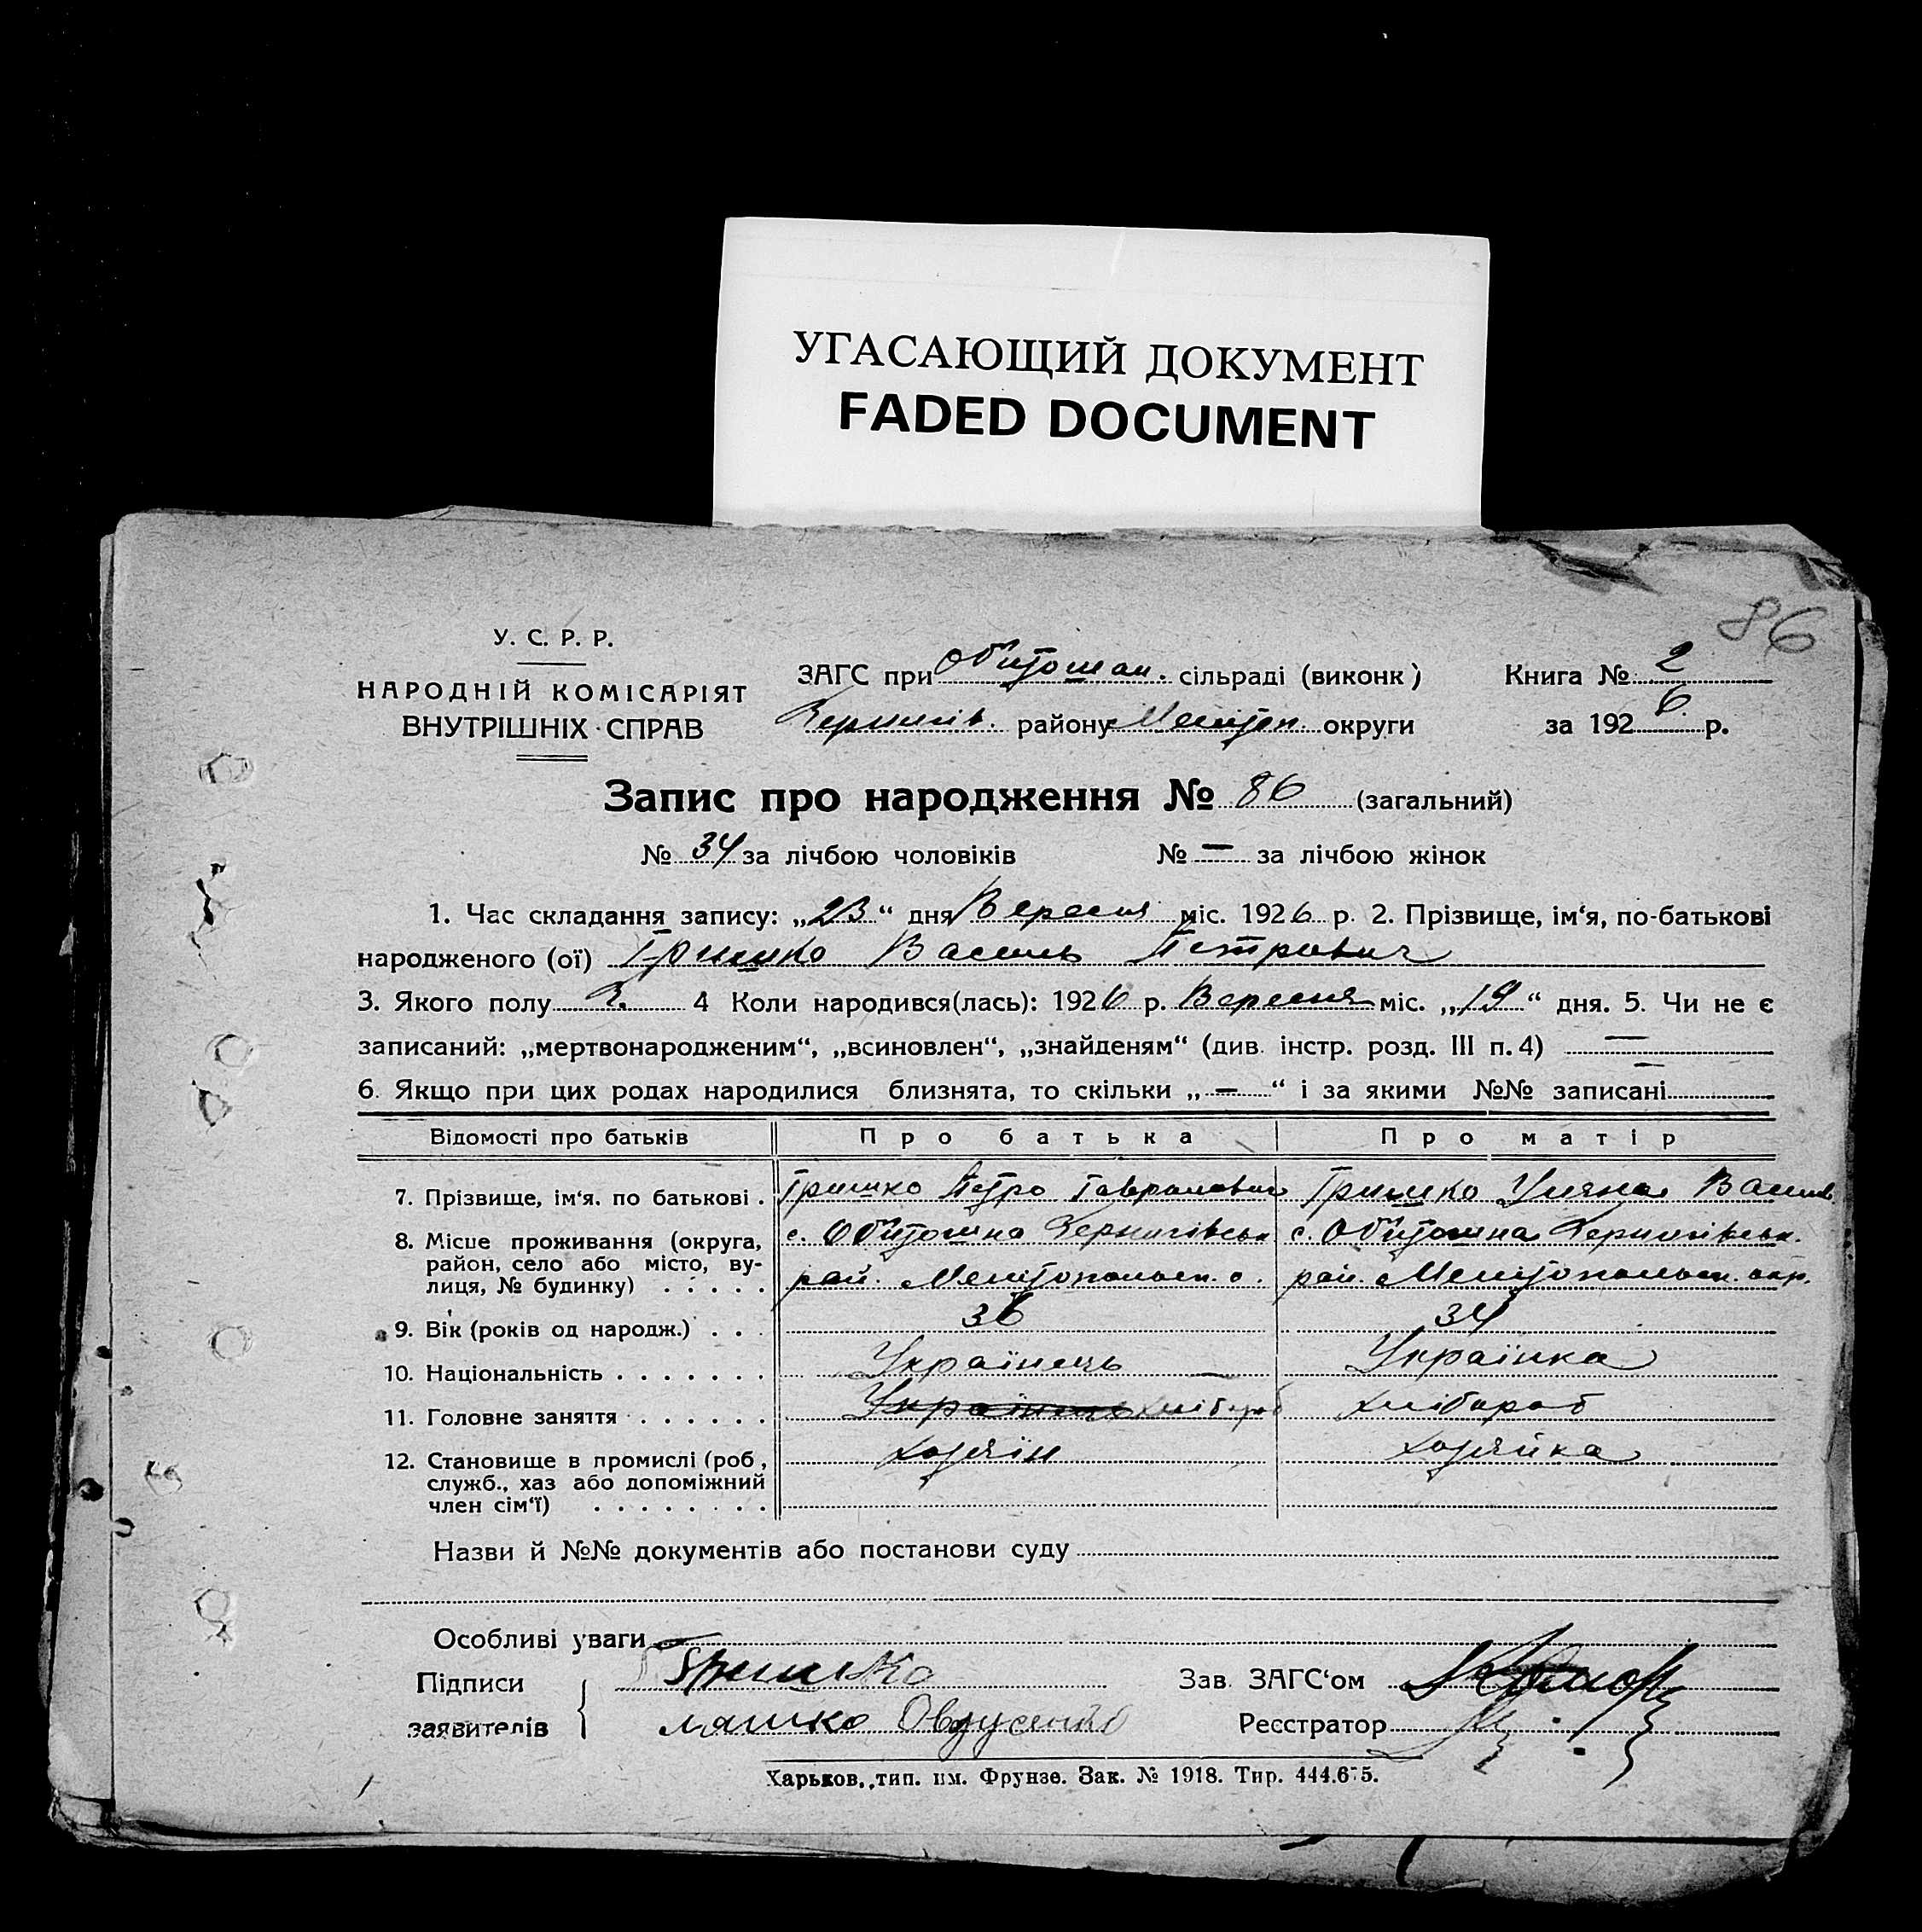 УГАСАЮЩИЙ ДОКУМЕНТ
FADED DOCUMENT
86
У. С. Р. Р.
НАРОДНІЙ КОМІСАРІЯТ
ВНУТРІШНІХ СПРАВ
ЗАГС при Обиточан. сільраді (виконк)
Черниγів. району Мелітоп. округи
Книга № 2
за 1926 р.
Запис про народження № 86 (загальний)
№ 34 за лічбою чоловіків № — за лічбою жінок
1. Час складання запису: „23“ дня Вересня міс. 1926 р. 2. Прізвище, ім‘я, по-батькові
народженого (ої) Гришко Василь Петрович
3. Якого полу Ч. 4 Коли народився(лась): 1926 р. Вересня міс. „19“ дня. 5. Чи не є
записаний: „мертвонародженим“, „всиновлен“, „знайденям“ (див. інстр. розд. III п. 4) —
6. Якщо при цих родах народилися близнята, то скільки „—“ і за якими №№ записані —
Відомості про батьків Про батька Про матір
7. Прізвище, ім‘я. по батькові . Гришко Петро Гаврилович Гришко Уляна Васил.
8. Місце проживання (округа, район, село або місто, вулиця, № будинку) . . . . .
с. Обиточна Чернигівськ рай. Мелітопольськ. о.
с. Обиточна Чернигівськ. рай. Мелітопольськ. окр.
9. Вік (років од народж.) . . . 36 34
10. Національність . . . . . . . Українець Українка
11. Головне заняття . . . . . . Українець хлібороб хлібороб
12. Становище в промислі (роб, служб., хаз або допоміжний член сім‘ї) . . . . . . . .
хозяїн хозяйка
Назви й №№ документів або постанови суду
Особливі уваги
Підписи заявителів Гришко
Зав. ЗАГС‘ом
Реєстратор
Харьков, тип. им. Фрунзе. Зак. № 1918. Тир. 444.675.